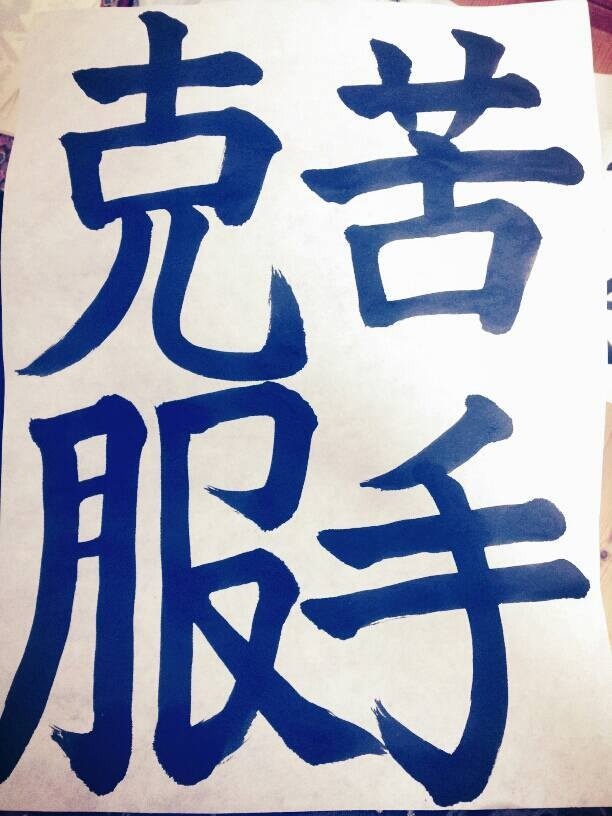 苦手
克服